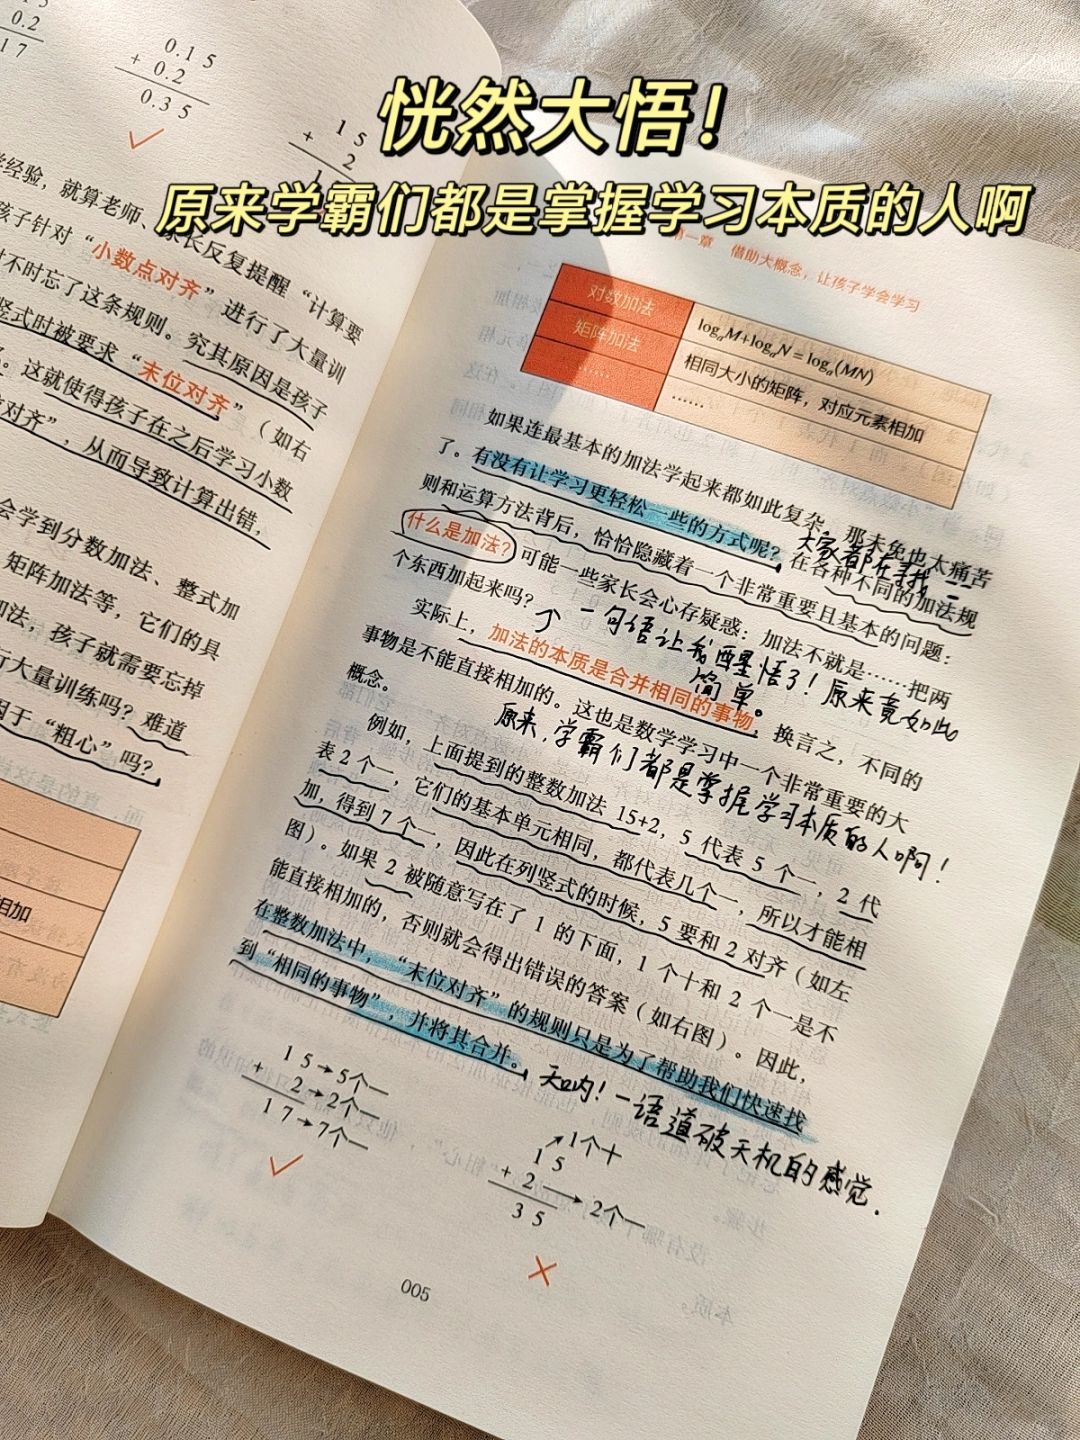 恍然大悟!
原来学霸们都是掌握学习本质的人啊
0.2
17
0.15
+ 0.2
0.35
15
+ 2
经验，就算老师、家长反复提醒“计算要
孩子针对“小数点对齐”进行了大量训
时不时忘了这条规则。究其原因是孩子
竖式时被要求“末位对齐”（如右
。这就使得孩子在之后学习小数
对齐”，从而导致计算出错，
会学到分数加法、整式加
矩阵加法等，它们的具
加法，孩子就需要忘掉
行大量训练吗？难道
因于“粗心”吗？
相加
第一章 借助大概念，让孩子学会学习
对数加法 logₐM+logₐN=logₐ(MN)
矩阵加法 相同大小的矩阵，对应元素相加
…… ……
如果连最基本的加法学起来都如此复杂，那未免也太痛苦
了。有没有让学习更轻松一些的方式呢？在各种不同的加法规
大家都在找
则和运算方法背后，恰恰隐藏着一个非常重要且基本的问题：
什么是加法？可能一些家长会心存疑惑：加法不就是……把两
个东西加起来吗？
一句话让我醒悟了！原来竟如此
简单。
实际上，加法的本质是合并相同的事物。换言之，不同的
事物是不能直接相加的。这也是数学学习中一个非常重要的大
概念。
原来，学霸们都是掌握学习本质的人啊！
例如，上面提到的整数加法 15+2，5 代表 5 个一，2 代
表 2 个一，它们的基本单元相同，都代表几个一，所以才能相
加，得到 7 个一，因此在列竖式的时候，5 要和 2 对齐（如左
图）。如果 2 被随意写在了 1 的下面，1 个十和 2 个一是不
能直接相加的，否则就会得出错误的答案（如右图）。因此，
在整数加法中，“末位对齐”的规则只是为了帮助我们快速找
到“相同的事物”，并将其合并。
天呐！一语道破天机的感觉.
15→5个一
+ 2→2个一
17→7个一
↗1个十
15
+ 2 →2个一
35
005